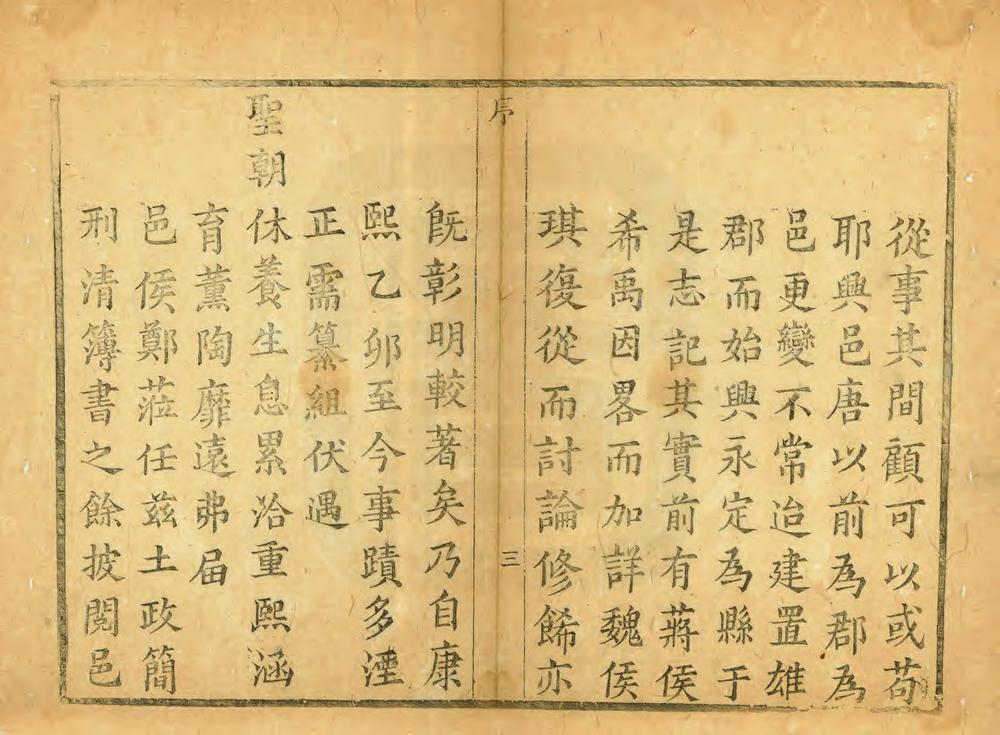 從事其間顧可以或苟
耶興邑唐以前為郡為
邑更變不常迨建置雄
郡而始興永定為縣于
是志記其實前有蔣侯
希禹因畧而加詳魏侯
琪復從而討論修餙亦
序
三
旣彰明較著矣乃自康
熙乙卯至今事蹟多湮
正需纂組伏遇
聖朝休養生息累洽重熙涵
育薰陶靡遠弗届
邑侯鄭蒞任茲土政簡
刑清簿書之餘披閱邑